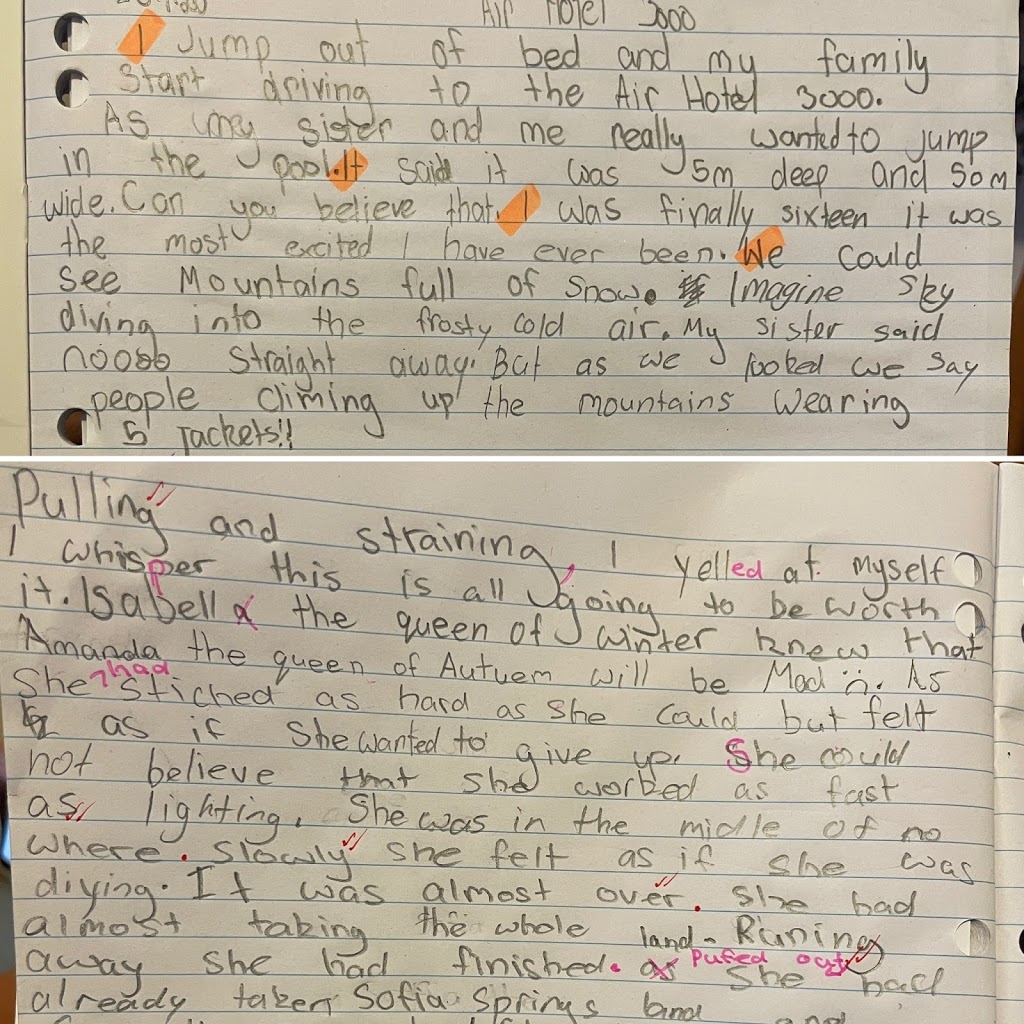 Air Hotel 3000
I Jump out of bed and my family
Start driving to the Air Hotel 3000.
As my sister and me really wanted to jump
in the pool. It said it was 5m deep and 50m
wide. Can you believe that. I was finally sixteen it was
the most excited I have ever been. We could
see Mountains full of snow. Imagine sky
diving into the frosty cold air. My sister said
nooob straight away. But as we looked we say
people climing up the mountains wearing
5 Jackets!!
Pulling and straining, I yelled at myself
I whisper this is all going to be worth
it. Isabell the queen of winter knew that
Amanda the queen of Autuem will be Mad. As
She had stiched as hard as she could but felt
as if she wanted to give up. She could
not believe that she worbed as fast
as lighting. She was in the midle of no
where. slowly she felt as if she was
diying. It was almost over. She had
almost taking the whole land. Runing
away she had finished. Pufed out She had
already taken Sofia Springs land and